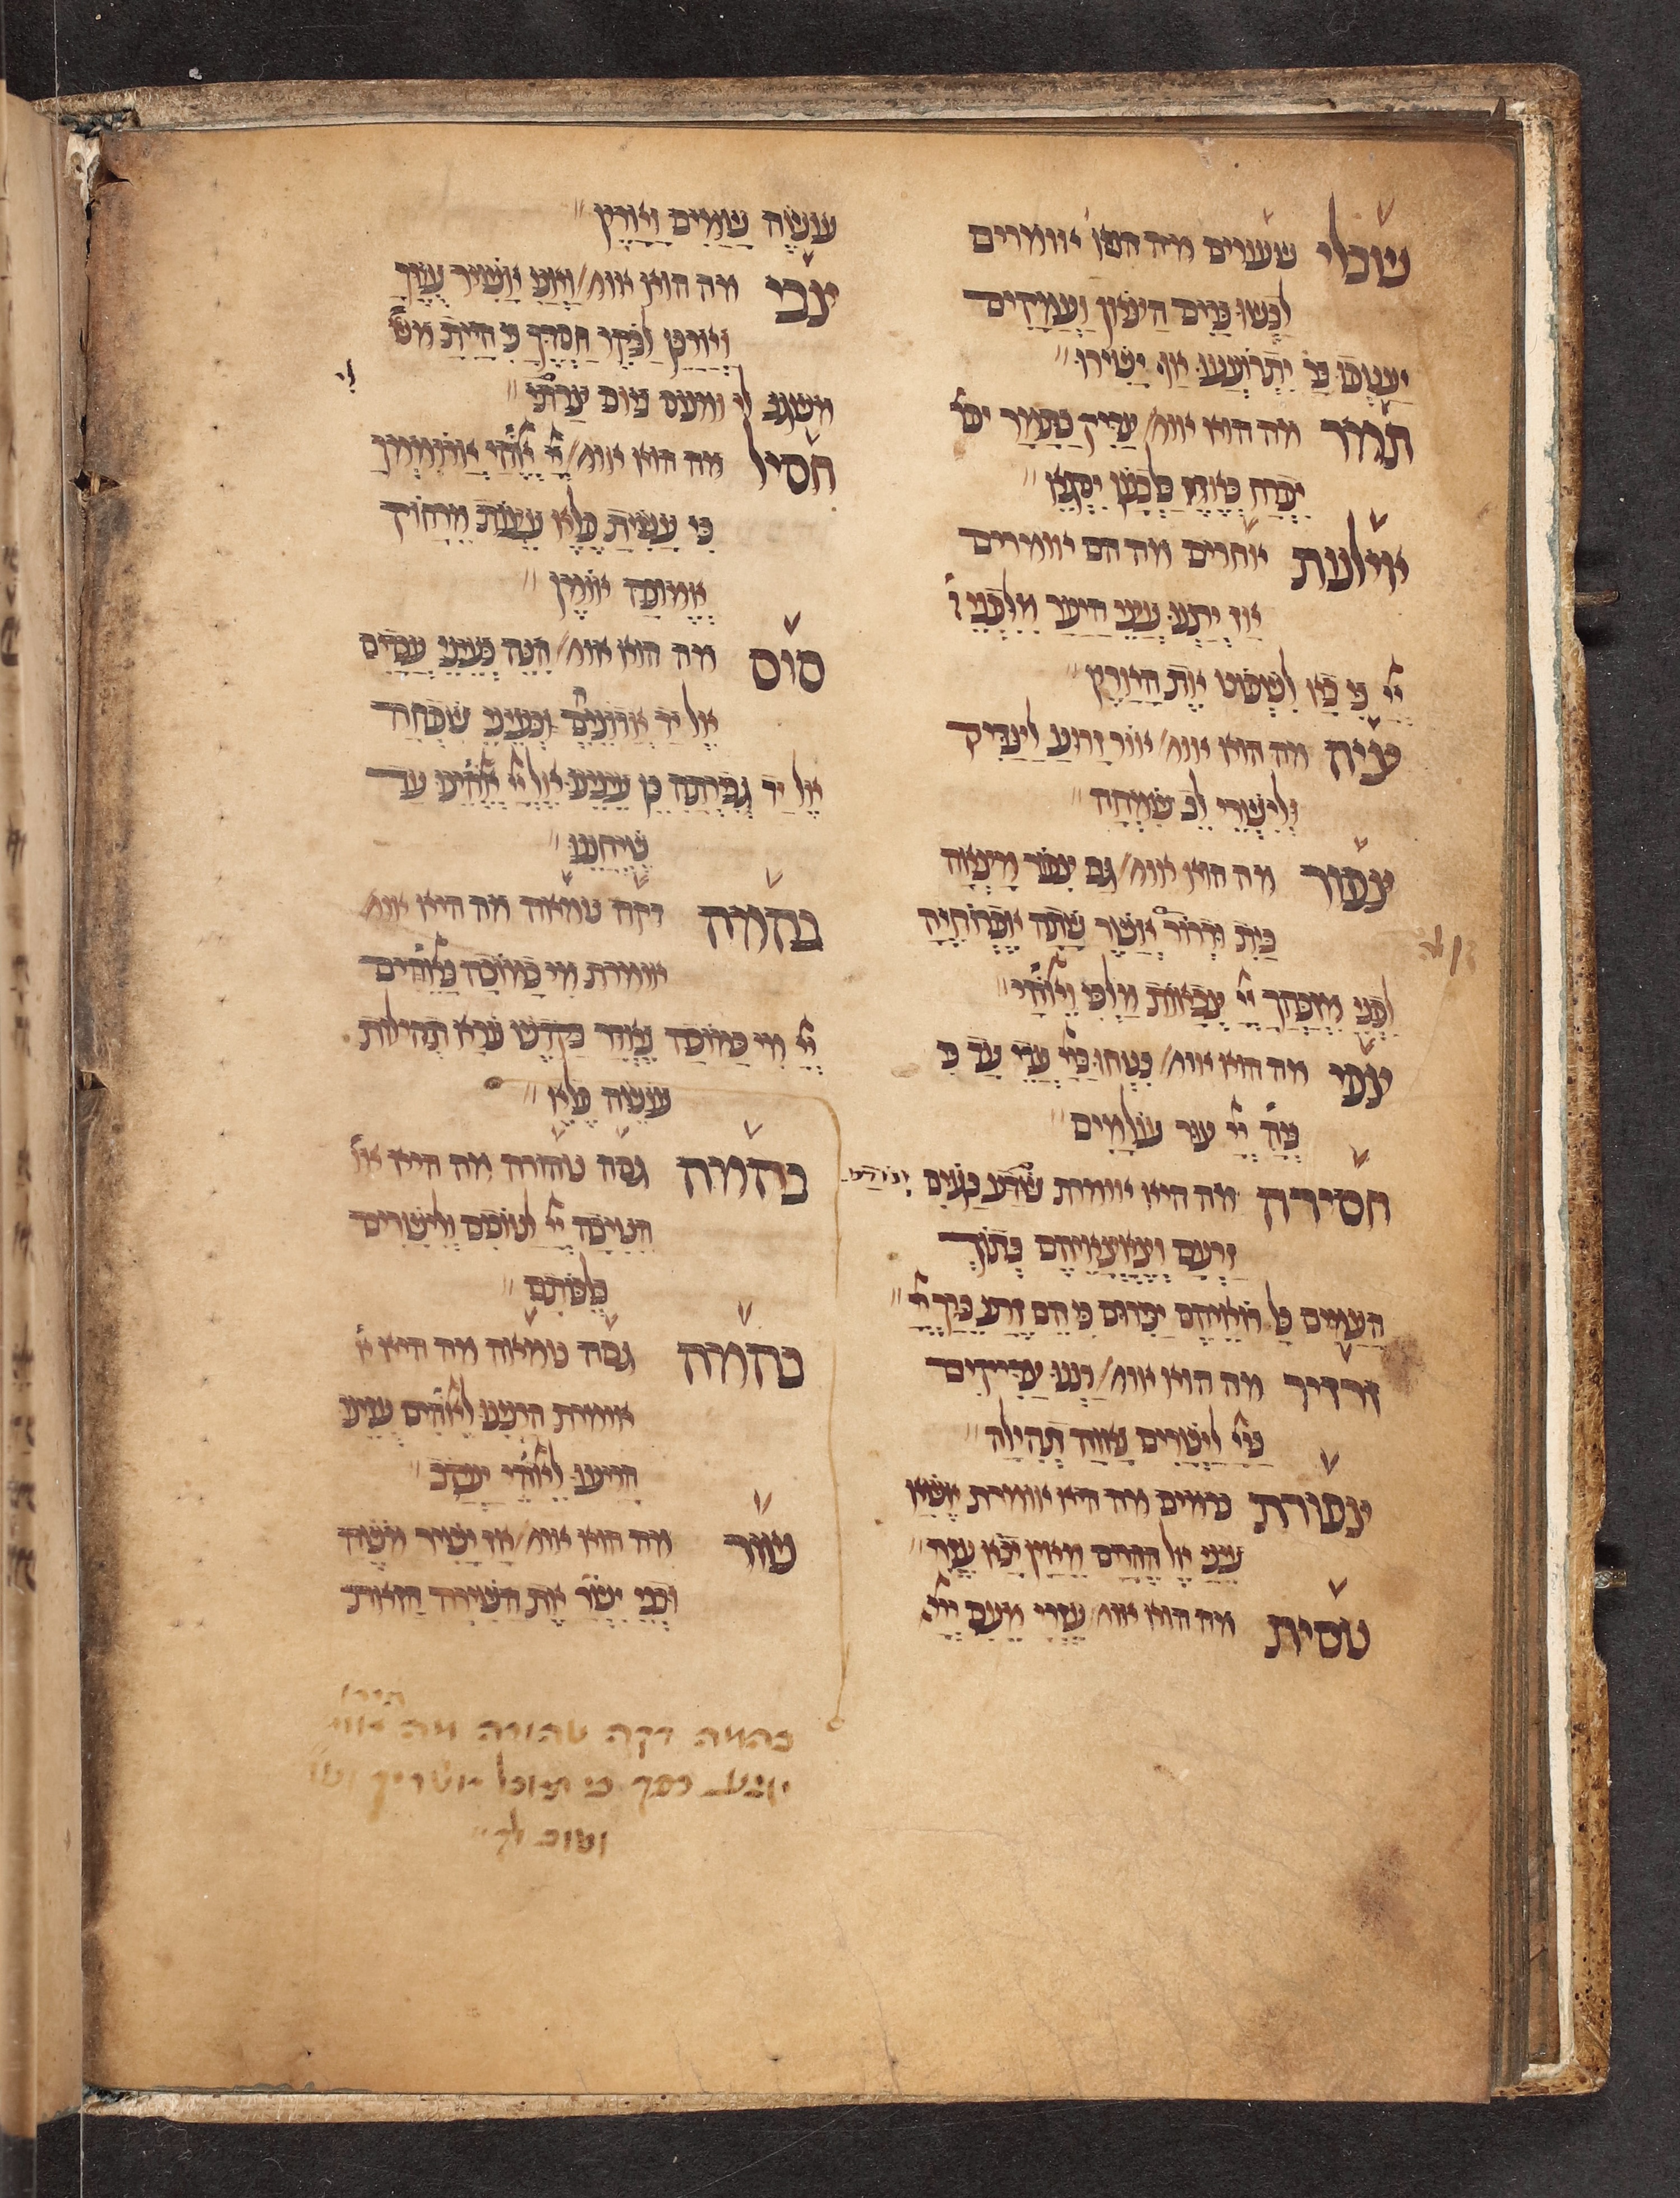 שבלי שעורים מה הם אומרים
לָבְשׁוּ כָרִים הַצֹּאן וַעֲמָקִים
יַעַטְפוּ בָר יִתְרוֹעֲעוּ אַף יָשִׁירוּ
תמר מה הוא אומ׳ צַדִּיק כַּתָּמָר יפ׳
יִפְרָח כְּאֶרֶז בַּלְּבָנוֹן יִשְׂגֶּא
אילנות אחרים מה הם אומרים
אָז יְרַנְּנוּ עֲצֵי הַיַּעַר מִלִּפְנֵי
יְיָ כִּי בָא לִשְׁפּוֹט אֶת הָאָרֶץ
מה הוא אומ׳ אור זָרוּעַ לַצַּדִּיק
וּלְיִשְׁרֵי לֵב שִׂמְחָה
צפור מה הוא אומ׳ גם צִפּוֹר מָצְאָה
בַיִת וּדְרוֹר אֲשֶׁר שָׁתָה אֶפְרוֹחֶיהָ
לִפְנֵי מִזְבְּחֶךָ יְיָ צְבָאוֹת מַלְכִּי וֵאלֹהָי
מה הוא אומ׳ בִּטְחוּ בַיְיָ עֲדֵי עַד כִּ
בְּיָהּ יְיָ צוּר עוֹלָמִים
חסידה מה היא אומרת וְנוֹדַע בַּגּוֹיִם
זַרְעָם וְצֶאֱצָאֵיהֶם בְּתוֹךְ
הָעַמִּים כָּל רֹאֵיהֶם יַכִּירוּם כִּי הֵם זֶרַע בֵּרַךְ יְיָ
דרדיר מה הוא אומ׳ רַנְּנוּ צַדִּיקִים
בַּיְיָ לַיְשָׁרִים נָאוָה תְהִילָּה
יצפורת כרמים מה היא אומרת אֶשָּׂא
עֵינַי אֶל הֶהָרִים מֵאַיִן יָבֹא עֶזְרִ
טסית מה הוא אומ׳ עֶזְרִי מֵעִם יְיָ
עוֹשֵׂה שָׁמַיִם וָאָרֶץ
צבי מה הוא אומ׳ וַאֲנִי אָשִׁיר עֻזֶּךָ
וַאֲרַנֵּן לַבֹּקֶר חַסְדֶּךָ כִּי הָיִיתָ מש׳
משגב לי ומנוס ביום צַר לי
לי
חסיל מה הוא אומ׳ יְיָ אֱלֹהַי אֲרוֹמִמְךָ
כִּי עָשִׂיתָ פֶּלֶא עֵצוֹת מֵרָחוֹק
אֱמוּנָה אוֹמֶן
סוס מה הוא אומ׳ הִנֵּה כְעֵינֵי עֲבָדִים
אֶל יַד אֲדוֹנֵיהֶם וּכְעֵינֵי שִׁפְחָה
אֶל יַד גְּבִרְתָּהּ כֵּן עֵינֵינוּ אֶל יְיָ אֱלֹהֵינוּ עַד
שֶׁיְּחָנֵּנוּ
בהמה דקה טמאה מה היא אומ׳
אומרת מִי כָמוֹכָה בָּאֵלִים
יְיָ מִי כָּמוֹכָה נֶאְדָּר בַּקֹּדֶשׁ נוֹרָא תְהִילּוֹת
עוֹשֵׂה פֶלֶא
בהמה גסה טהורה מה היא או׳
הֵטִיבָה יְיָ לַטּוֹבִים וְלִישָׁרִים
בְּלִבּוֹתָם
בהמה גסה טמאה מה היא א׳
אומרת הַרְנִינוּ לֵאלֹהִים עוּזֵּנוּ
הָרִיעוּ לֵאלֹהֵי יַעֲקֹב
מה הוא אומ׳ אָז יָשִׁיר מֹשֶׁה
וּבְנֵי יִשְׂרָ׳ אֶת הַשִּׁירָה הַזֹּאת
היא
בהמה דקה טהורה מה אומ׳
יגיע כפך כי תאכל אשריך
וטוב לך